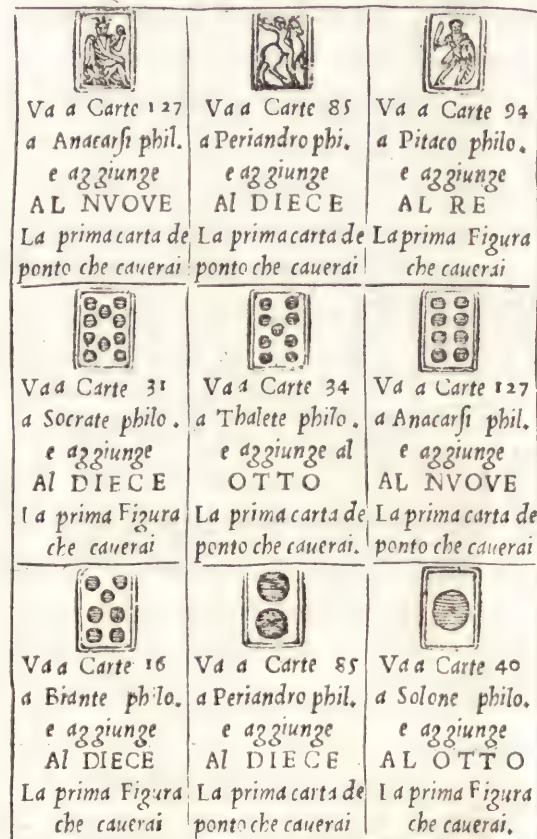 Va a Carte 127
a Anacarsi phil.
e aggiunge
AL NVOVE
La prima carta de
ponto che cauerai
Va a Carte 85
a Periandro phi.
e aggiunge
Al DIECE
La prima carta de
ponto che cauerai
Va a Carte 94
a Pitaco philo.
e aggiunge
AL RE
La prima Figura
che cauerai
Va a Carte 31
a Socrate philo.
e aggiunge
Al DIECE
La prima Figura
che cauerai
Va a Carte 34
a Thalete philo.
e aggiunge al
OTTO
La prima carta de
ponto che cauerai.
Va a Carte 127
a Anacarsi phil.
e aggiunge
AL NVOVE
La prima carta de
ponto che cauerai
Va a Carte 16
a Biante philo.
e aggiunge
Al DIECE
La prima Figura
che cauerai
Va a Carte 85
a Periandro phil.
e aggiunge
Al DIECE
La prima carta de
ponto che cauerai
Va a Carte 40
a Solone philo.
e aggiunge
AL OTTO
La prima Figura
che cauerai.